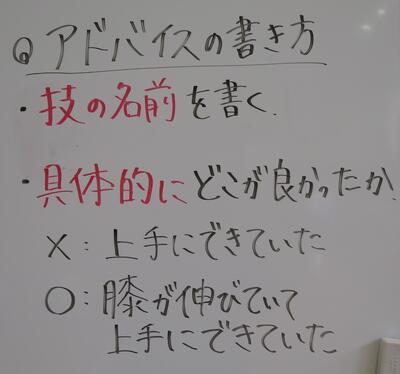 ◎アドバイスの書き方
・技の名前を書く.
・具体的にどこが良かったか.
×：上手にできていた
○：膝が伸びていて
上手にできていた